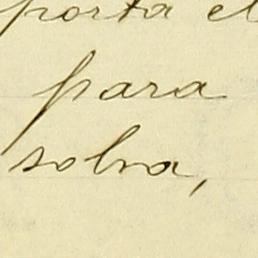 porta el
para
solva,